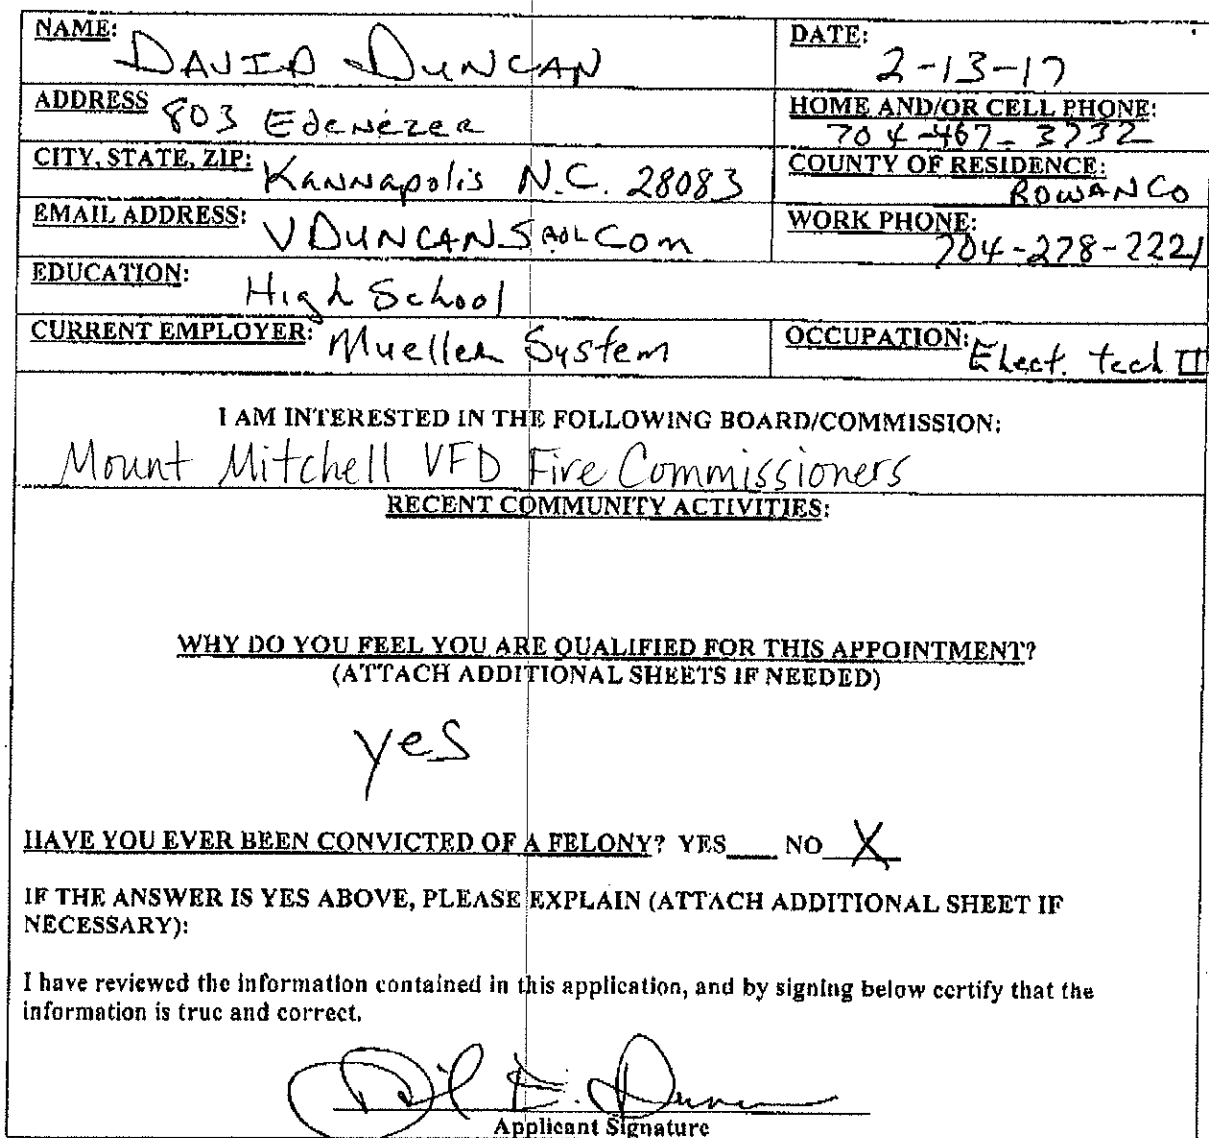 NAME: DAVID DUNCAN
DATE: 2-13-17
ADDRESS 803 Edenezer
HOME AND/OR CELL PHONE: 704-467-3732
CITY, STATE, ZIP: Kannapolis N.C. 28083
COUNTY OF RESIDENCE: ROWAN CO
EMAIL ADDRESS: VDUNCANS AOL Com
WORK PHONE: 704-278-2221
EDUCATION: High School
CURRENT EMPLOYER: Mueller System
OCCUPATION: Elect. tech II
I AM INTERESTED IN THE FOLLOWING BOARD/COMMISSION:
Mount Mitchell VFD Fire Commissioners
RECENT COMMUNITY ACTIVITIES:
WHY DO YOU FEEL YOU ARE QUALIFIED FOR THIS APPOINTMENT?
(ATTACH ADDITIONAL SHEETS IF NEEDED)
yes
HAVE YOU EVER BEEN CONVICTED OF A FELONY? YES____ NO X
IF THE ANSWER IS YES ABOVE, PLEASE EXPLAIN (ATTACH ADDITIONAL SHEET IF
NECESSARY):
I have reviewed the information contained in this application, and by signing below certify that the
information is true and correct.
David E. Duncan
Applicant Signature